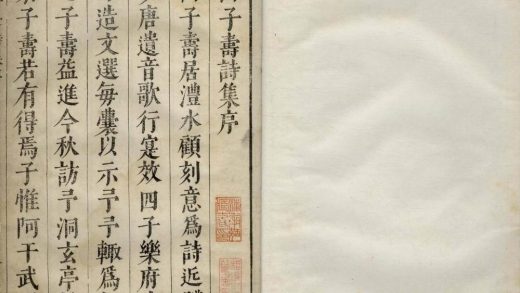 子壽詩集序
子壽居澧水顧刻意爲詩近
唐遺音歌行寔效四子樂府
造文選每囊以示予予輙爲
子壽益進今秋訪予洞玄亭
子壽若有得焉子惟阿干武